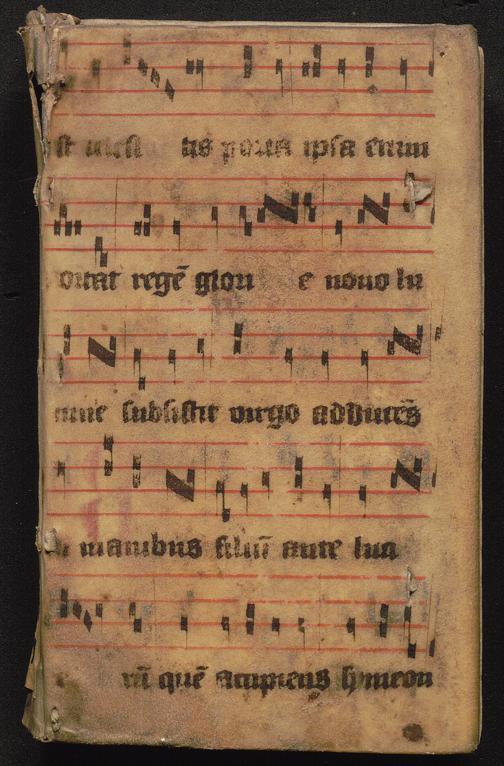 st celest is porta ipsa enim
ortat regē glori e nouo lu
mine subsistit virgo adducēs
manibus filiū ante luci
rū quē accipiens symeon